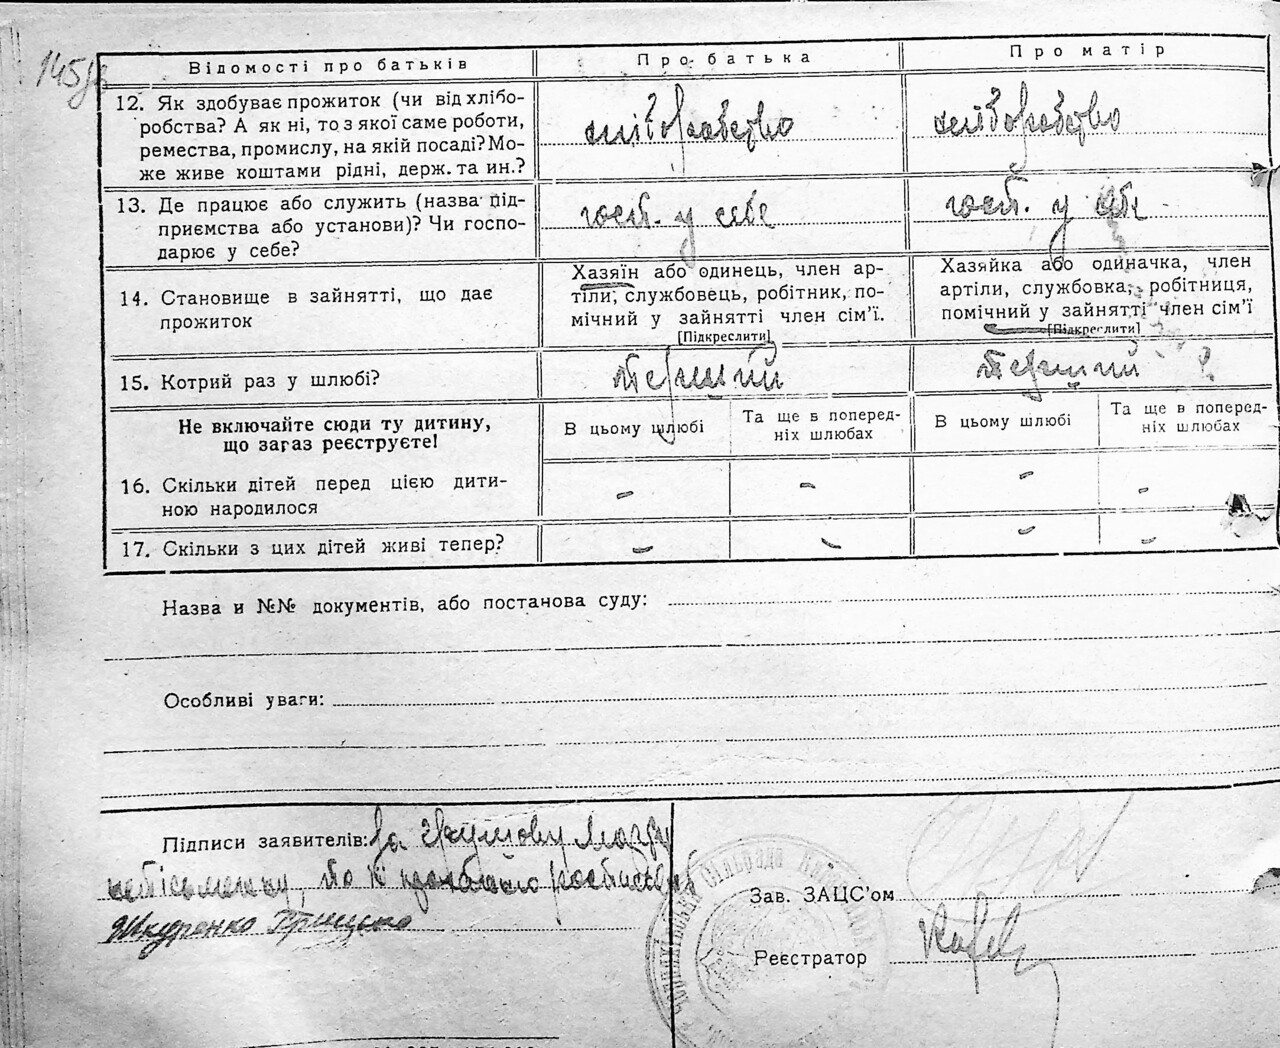 145
Відомості про батьків
Про батька
Про матір
12. Як здобуває прожиток (чи від хлібо-
робства? А як ні, то з якої саме роботи,
ремества, промислу, на якій посаді? Мо-
же живе коштами рідні, держ. та ин.?
хліборобство
хліборобство
13. Де працює або служить (назва під-
приємства або установи)? Чи госпо-
дарює у себе?
госп. у себе
госп. у себе
14. Становище в зайнятті, що дає
прожиток
Хазяїн або одинець, член ар-
тіли, службовець, робітник, по-
мічний у зайнятті член сім’ї.
[Підкреслити]
Хазяйка або одиначка, член
артіли, службовка, робітниця,
помічний у зайнятті член сім’ї
[Підкреслити]
15. Котрий раз у шлюбі?
перший
перший
Не включайте сюди ту дитину,
що загаз реєструєте!
В цьому шлюбі
Та ще в поперед-
ніх шлюбах
В цьому шлюбі
Та ще в поперед-
ніх шлюбах
16. Скільки дітей перед цією дити-
ною народилося
- - - -
17. Скільки з цих дітей живі тепер?
- - - -
Назва и №№ документів, або постанова суду:
Особливі уваги:
Підписи заявителів: За
неписьменну, по її
Шкуренко Грицько
Зав. ЗАЦС’ом
Реєстратор